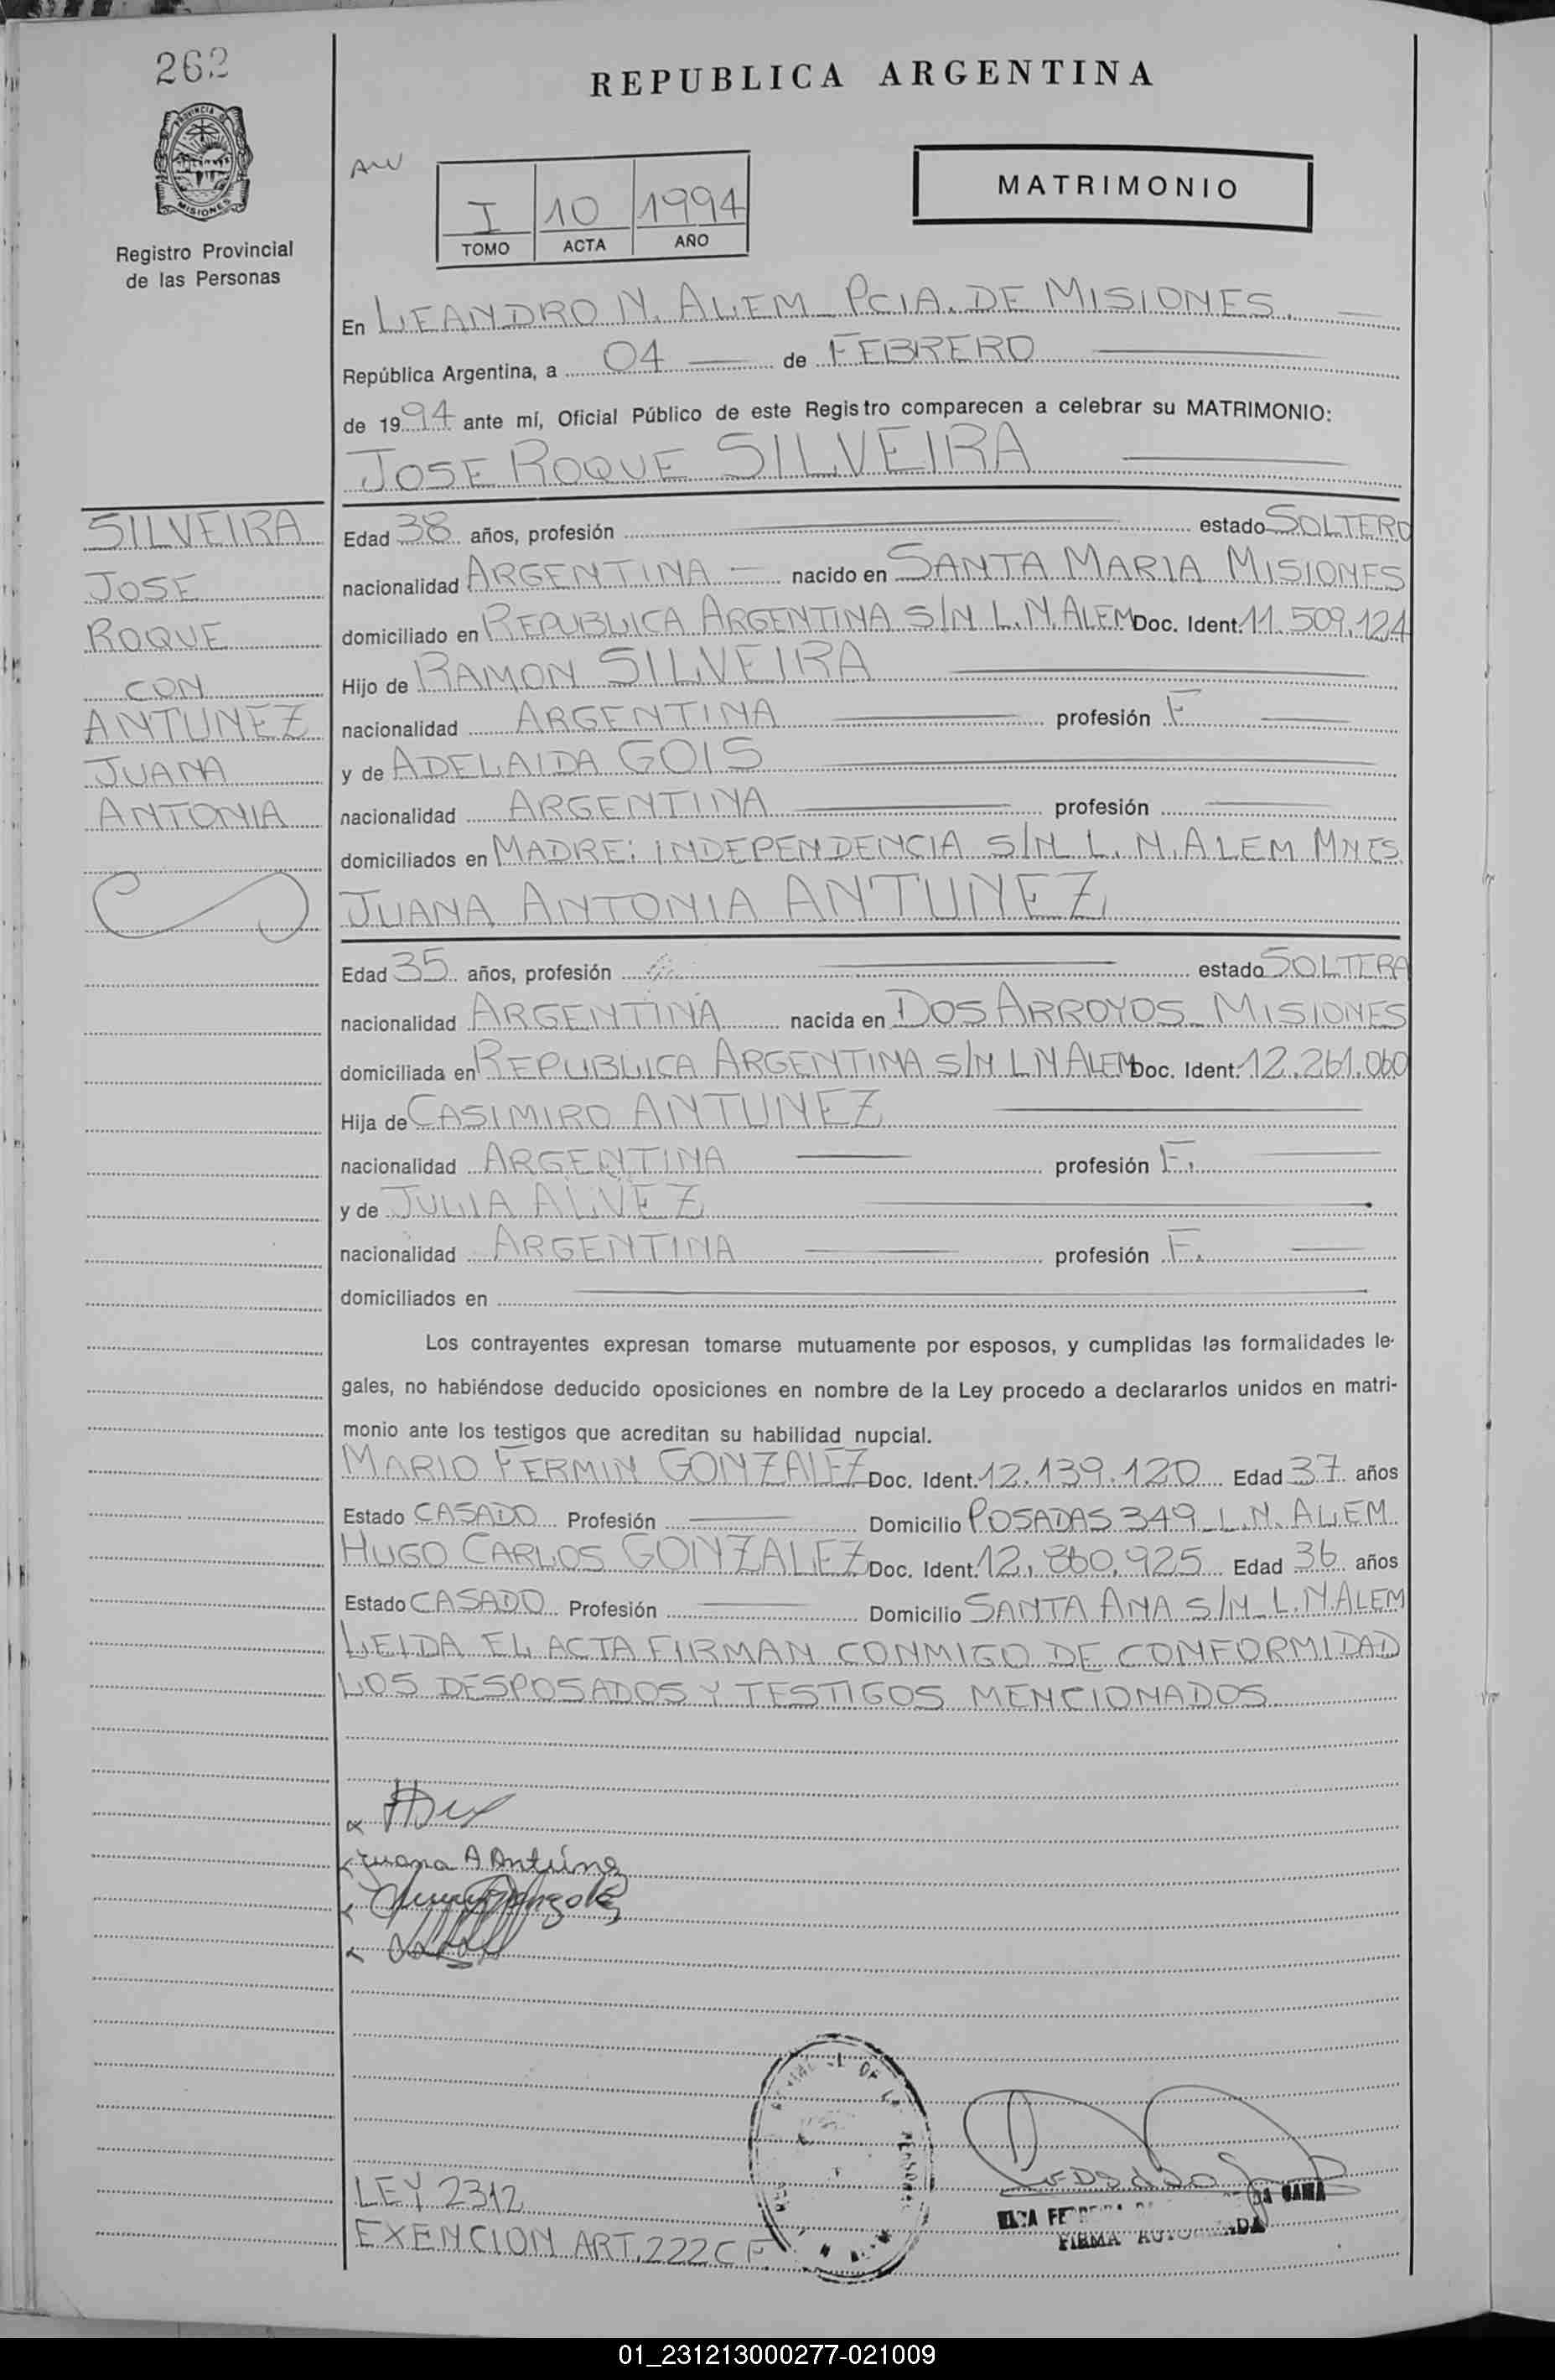 262
REPUBLICA ARGENTINA
PROVINCIA DE
MISIONES
Registro Provincial
de las Personas
I 10 1994
TOMO ACTA AÑO
MATRIMONIO
En LEANDRO N. ALEM PCIA. DE MISIONES.
República Argentina, a 04 de FEBRERO
de 1994 ante mí, Oficial Público de este Registro comparecen a celebrar su MATRIMONIO:
JOSE ROQUE SILVEIRA
SILVEIRA
JOSE
ROQUE
CON
ANTUNEZ
JUANA
ANTONIA
Edad 38 años, profesión estado SOLTERO
nacionalidad ARGENTINA nacido en SANTA MARIA MISIONES
domiciliado en REPUBLICA ARGENTINA S/N L.N.ALEM Doc. Ident. 11.509.124
Hijo de RAMON SILVEIRA
nacionalidad ARGENTINA profesión F
y de ADELAIDA GOIS
nacionalidad ARGENTINA profesión
domiciliados en MADRE: INDEPENDENCIA S/N L. N. ALEM MNES.
JUANA ANTONIA ANTUNEZ
Edad 35 años, profesión estado SOLTERA
nacionalidad ARGENTINA nacida en DOS ARROYOS MISIONES
domiciliada en REPUBLICA ARGENTINA S/N L N ALEM Doc. Ident. 12.261.060
Hija de CASIMIRO ANTUNEZ
nacionalidad ARGENTINA profesión F.
y de JULIA ALVEZ
nacionalidad ARGENTINA profesión F.
domiciliados en
Los contrayentes expresan tomarse mutuamente por esposos, y cumplidas las formalidades le-
gales, no habiéndose deducido oposiciones en nombre de la Ley procedo a declararlos unidos en matri-
monio ante los testigos que acreditan su habilidad nupcial.
MARIO FERMIN GONZALEZ Doc. Ident. 12.139.120 Edad 37 años
Estado CASADO Profesión Domicilio POSADAS 349 L.N. ALEM
HUGO CARLOS GONZALEZ Doc. Ident. 12.860.925 Edad 36 años
Estado CASADO Profesión Domicilio SANTA ANA S/N L.N.ALEM
LEIDA EL ACTA FIRMAN CONMIGO DE CONFORMIDAD
LOS DESPOSADOS Y TESTIGOS MENCIONADOS
Juana A Antúnez
LEY 2312
EXENCION ART. 222 C F.
DA GAMA
FIRMA AUTORIZADA
01_231213000277-021009